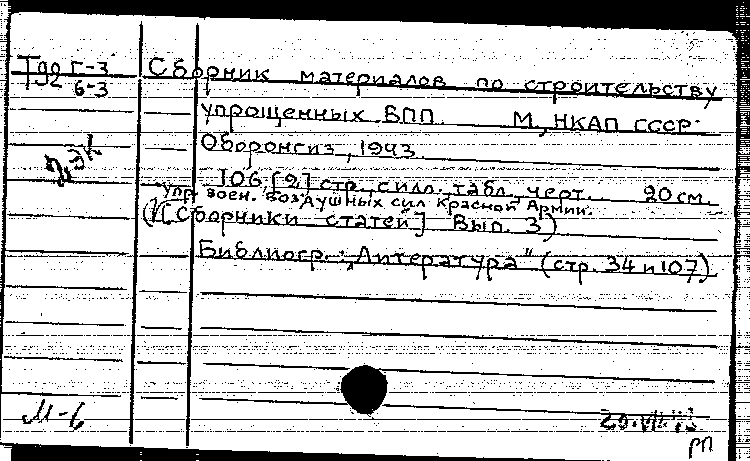 Г-3 Сборник материалов по строительству
6-3
упрощенных ВПП. М, НКАП СССР.
Оборонгиз, 1943.
106 [2] стр., с илл. табл. черт. 20 см.
Упр. воен. воздушных сил Красной Армии.
([Сборники статей] Вып. 3)
Библиогр.: „Литература" (стр. 34 и 107)
М-6
РП